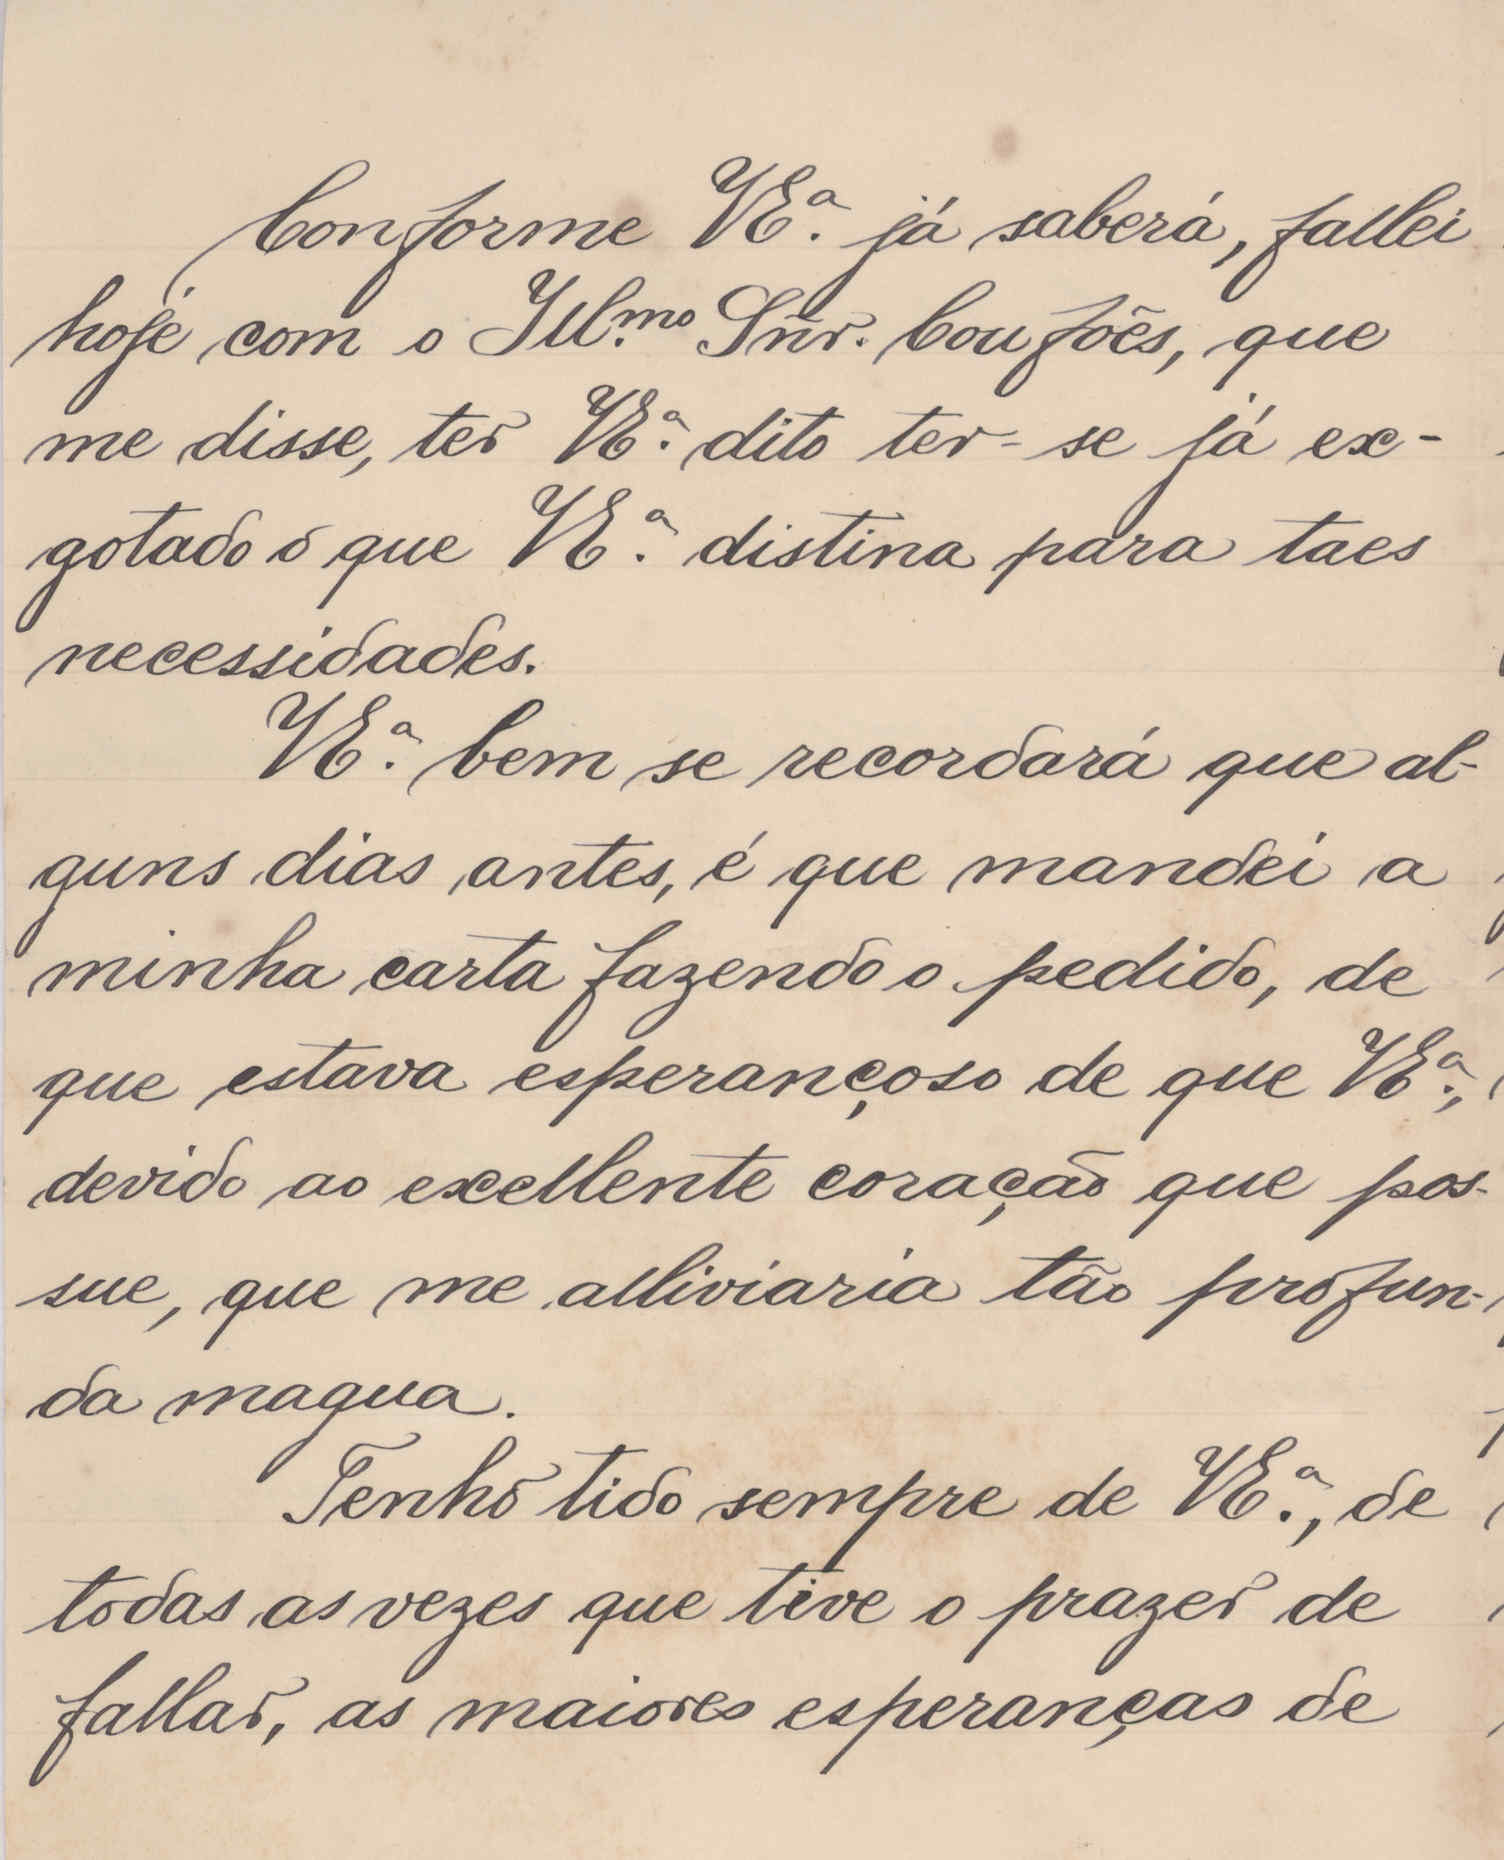 Conforme VEª. já saberá, fallei
hoje com o Ill.mo Snr. Coufões, que
me disse, ter VEª. dito ter-se já ex-
gotado o que VEª. distina para taes
necessidades.
VEª. bem se recordará que al-
guns dias antes, é que mandei a
minha carta fazendo o pedido, de
que estava esperançoso de que VEª.,
devido ao excellente coração que pos-
sue, que me alliviaria tão profun-
da magua.
Tenho tido sempre de VEª., de
todas as vezes que tive o prazer de
fallar, as maiores esperanças de